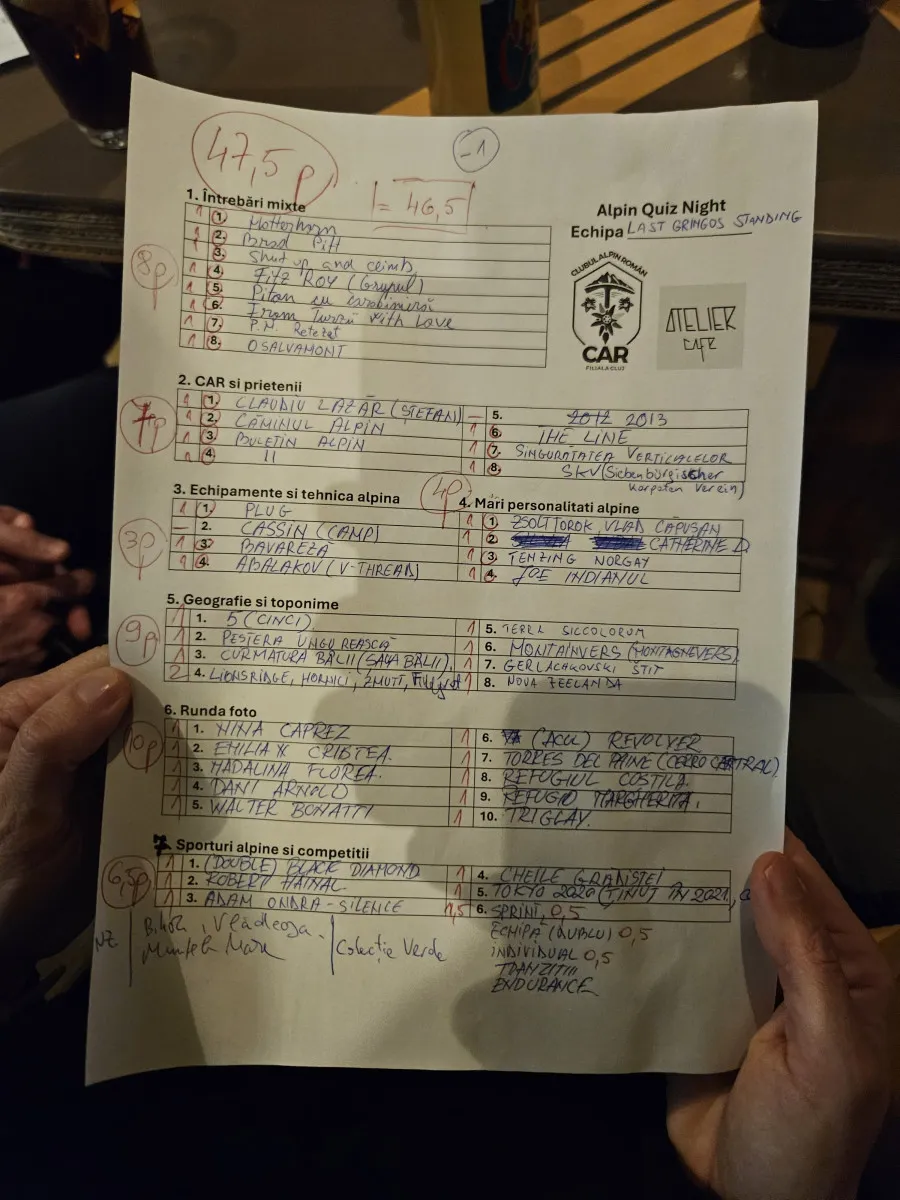 47,5 p
-1
= 46,5
Alpin Quiz Night
Echipa LAST GRINGOS STANDING
CLUBUL ALPIN ROMÂN
CAR
FILIALA CLUJ
ATELIER
CAFE
1. Întrebări mixte
8p
1 1. Motterhorn
1 2. Brad Pitt
1 3. Shut up and climb
1 4. Fitz Roy (Grupul)
1 5. Piton cu carabinieră
1 6. From Turzii With Love
1 7. P.N. Retezat
1 8. OSALVAMONT
2. CAR si prietenii
7p
1 1. CLAUDIU LAZĂR (ȘTEFAN)
1 2. CAMINUL ALPIN
1 3. BULETIN ALPIN
1 4. 11
— 5. 2012 2013
1 6. THE LINE
1 7. SINGURATATEA VERTICALELOR
1 8. SKV (Siebenbürgischer
Karpaten Verein)
3. Echipamente si tehnica alpina
3p
1 1. PLUG
— 2. CASSIN (CAMP)
1 3. BAVAREZA
1 4. ABALAKOV (V-THREAD)
4. Mări personalitati alpine
4p
1 1. ZSOLT TOROK, VLAD CĂPUSAN
1 2. CATHERINE D
1 3. TENZING NORGAY
1 4. JOE INDIANUL
5. Geografie si toponime
9p
1 1. 5 (CINCI)
1 2. PESTERA UNGUREASCĂ
1 3. CURMATURA BĂLII (ȘAUA BĂLII)
2 4. LIONSRIDGE, HORNLI, ZMUTT,
1 5. TERRA SICCOLORUM
1 6. MONTAINVERS (MONTAGNEVERS)
1 7. GERLACHOVSKI ŠTIT
1 8. NOUA ZEELANDA
6. Runda foto
10p
1 1. NINA CAPREZ
1 2. EMILIA CRISTEA.
1 3. MADALINA FLOREA.
1 4. DANI ARNOLD
1 5. WALTER BONATTI
1 6. (ACUL) REVOLVER
1 7. TORRES DEL PAINE (CERRO CENTRAL)
1 8. REFUGIUL COSTILA.
1 9. REFUGIO MARGHERITA.
1 10. TRIGLAV.
7. Sporturi alpine si competitii
6,5p
1 1. (DOUBLE) BLACK DIAMOND
1 2. ROBERT HAINAL
1 3. ADAM ONDRA - SILENCE
1 4. CHEILE GRADISTEI
1 5. TOKYO 2020 (ȚINUT ÎN 2021,
1,5 6. SPRINT, 0,5
ECHIPA (DUBLU) 0,5
INDIVIDUAL 0,5
TRANZITII
ENDURANCE
NZ
Bihor, Vlădeasa
Muntele Mare
Colecție Verde